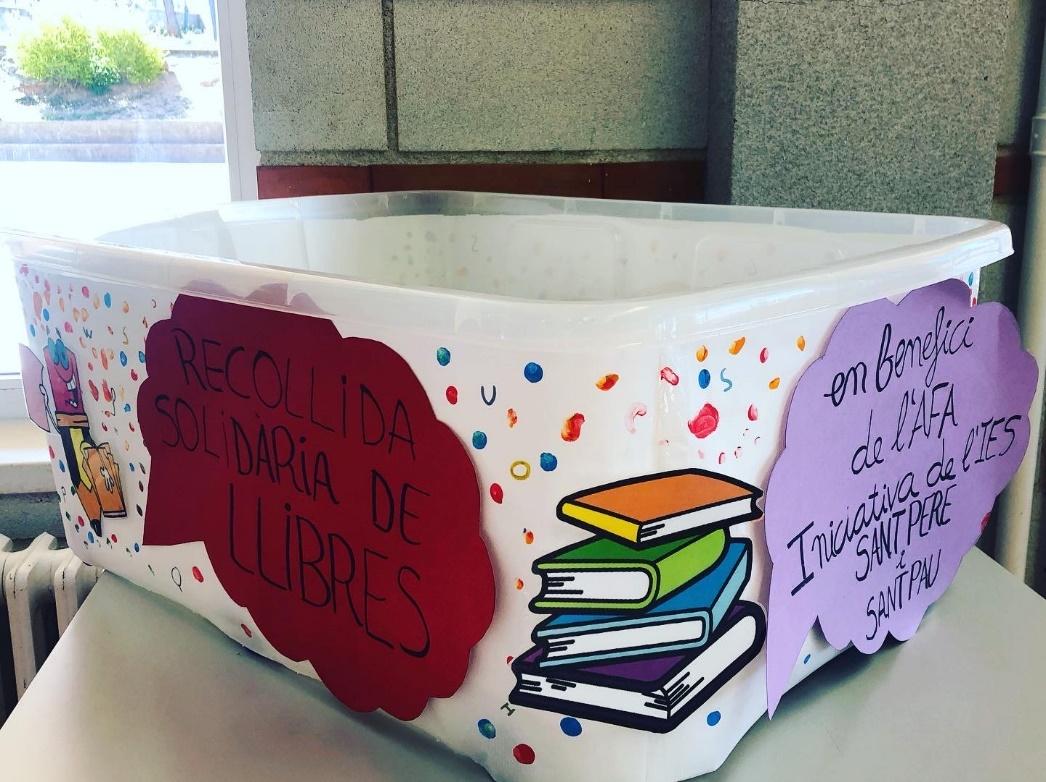 RECOLLiDA
SOLiDÀRiA DE
LLiBRES
en Benefici
de l'AFA
Iniciativa de l'IES
SANT PERE
i
SANT PAU